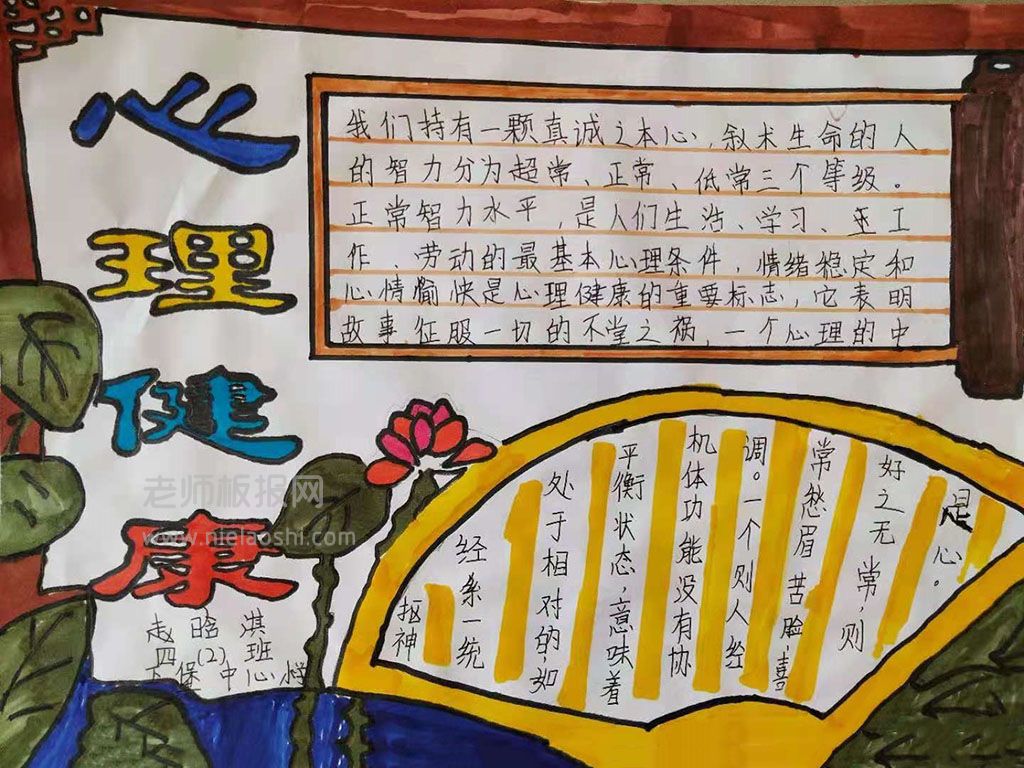 心
理
健
康
我们持有一颗真诚之本心,叙术生命的人
的智力分为超常、正常、低常三个等级。
正常智力水平,是人们生活、学习、工
作、劳动的最基本心理条件,情绪稳定和
心情愉快是心理健康的重要标志,它表明
故事,征服一切的不堂之祸,一个心理的中
抠神
经系一统
处于相对的,如
平衡状态,意味着
机体功能没有协
调。一个则人经
常愁眉苦脸,喜
好之无常,则
是心。
赵晗淇
四(2)班
保中心
老师板报网
www.nielaoshi.com